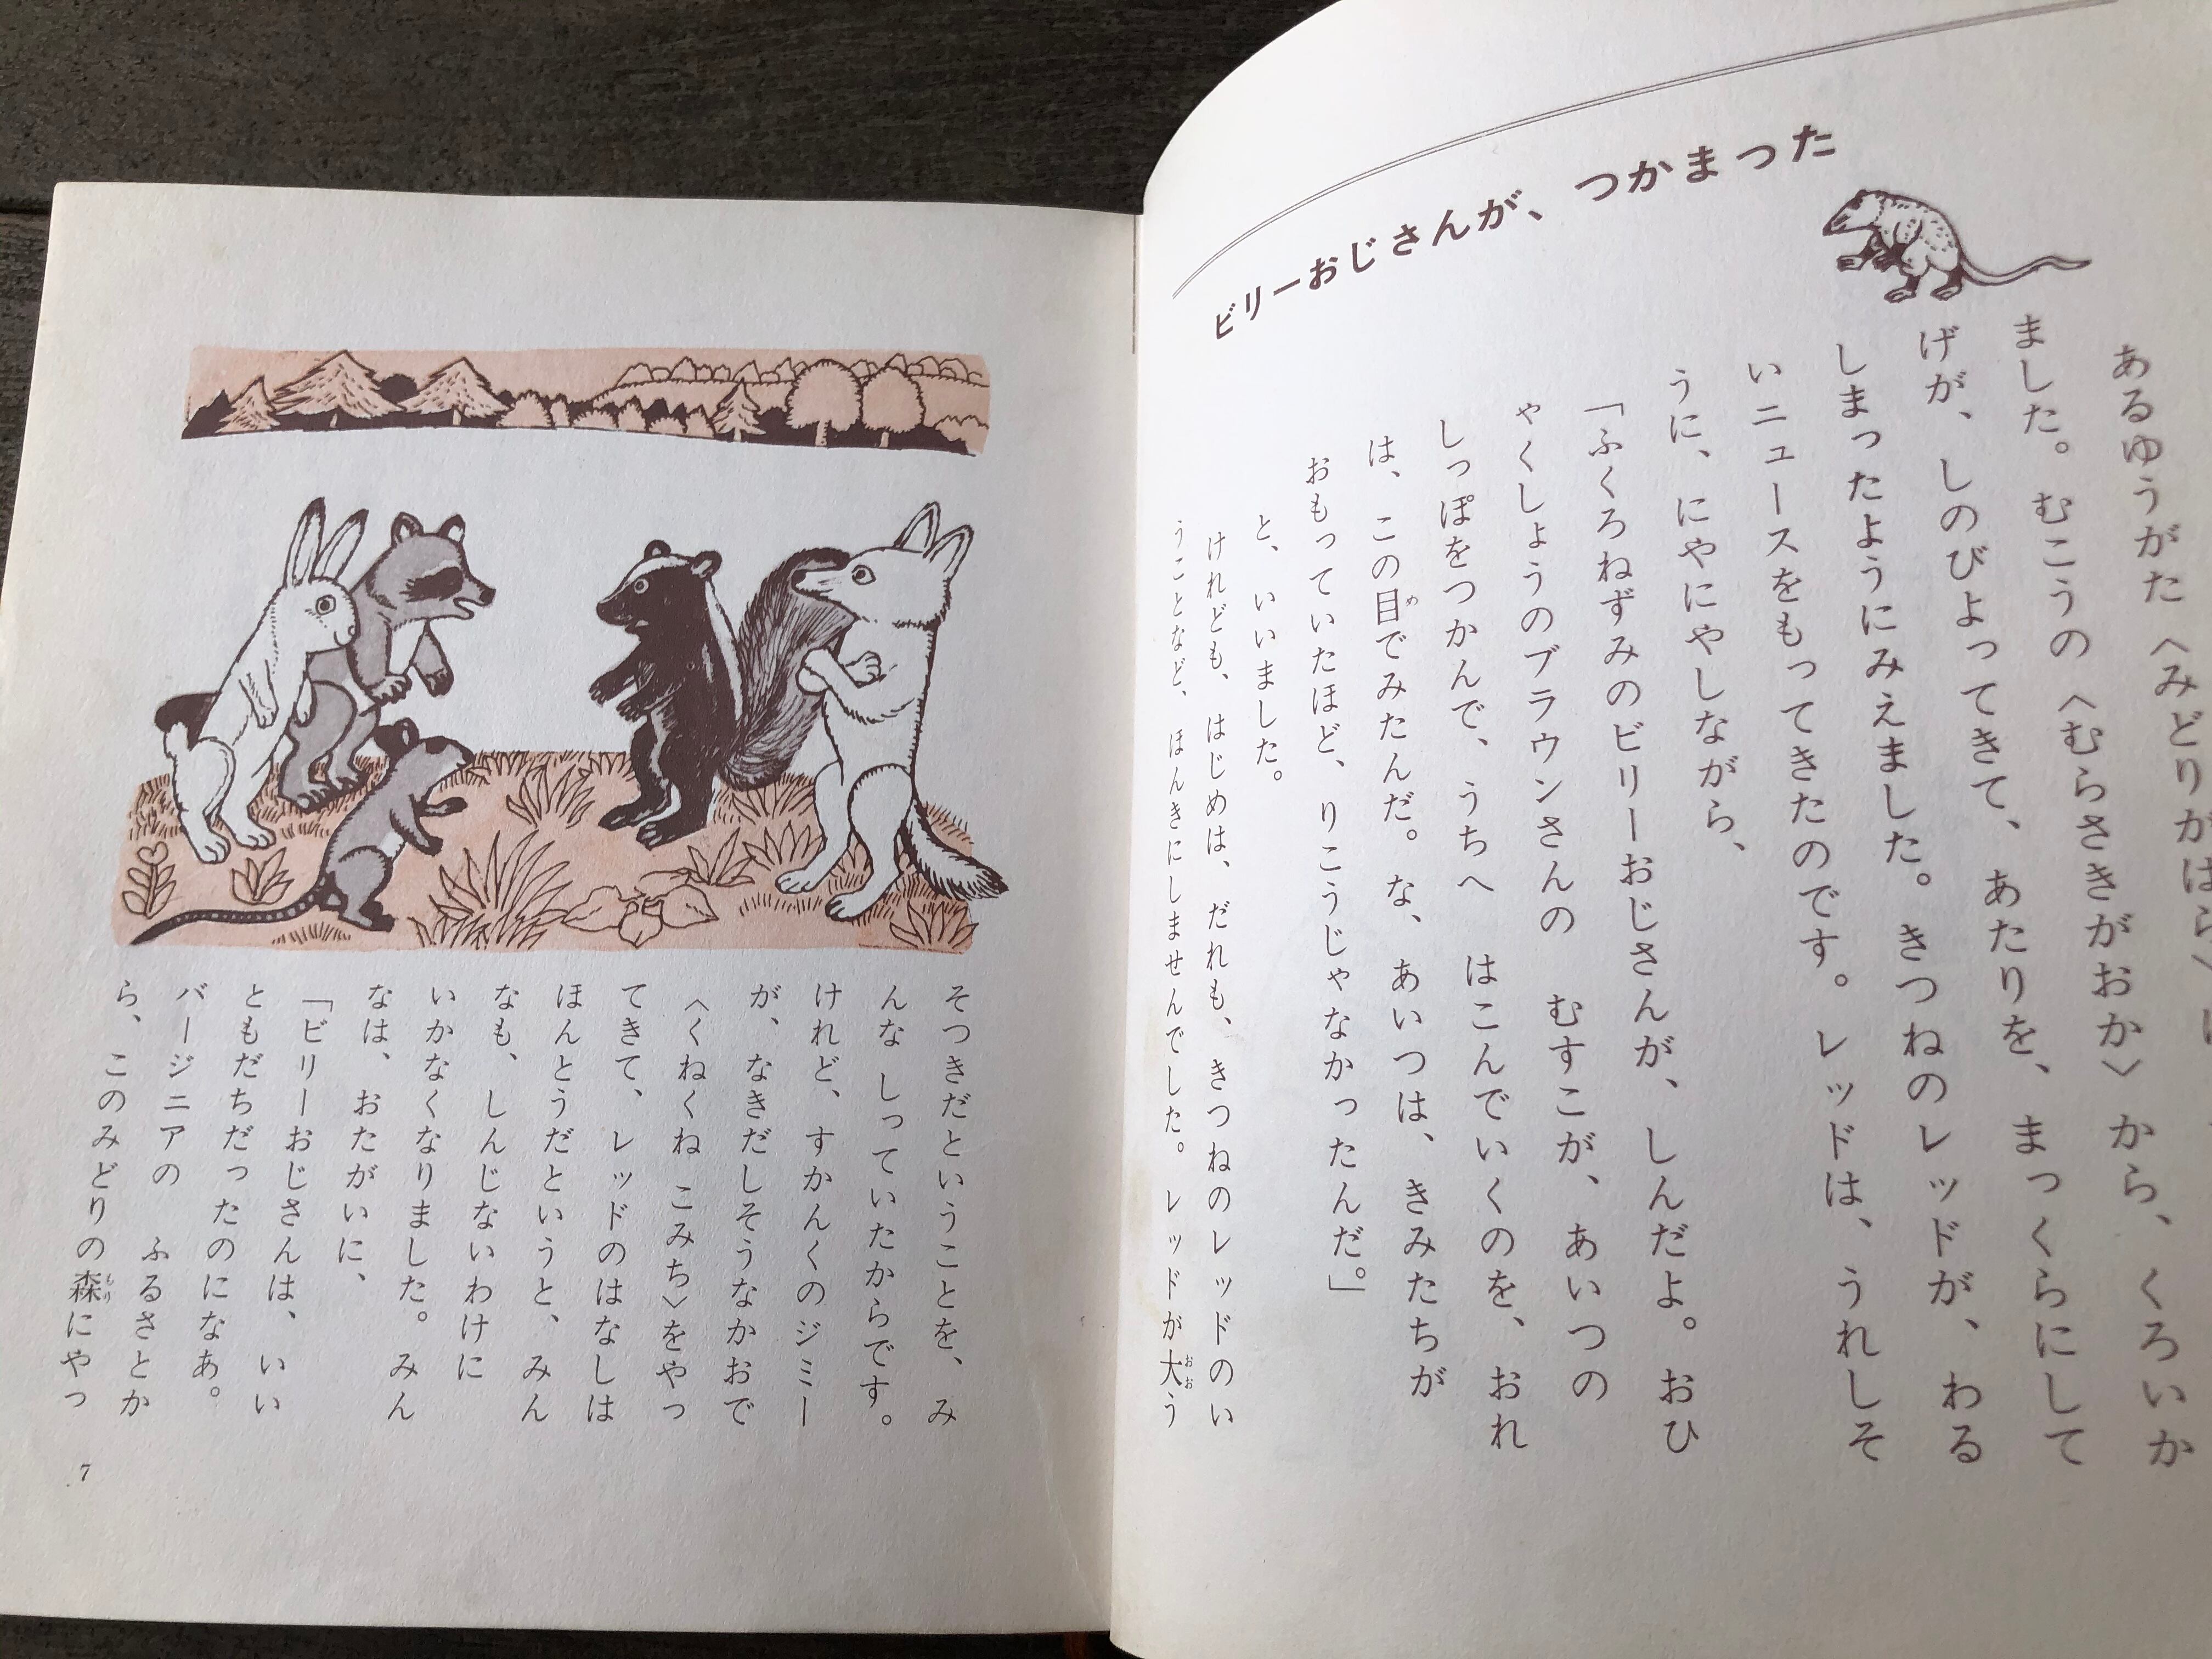 ビリーおじさんが、つかまった
あるゆうがた〈みどりがはら〉に
ました。むこうの〈むらさきがおか〉から、くろいか
げが、しのびよってきて、あたりを、まっくらにして
しまったようにみえました。きつねのレッドが、わる
いニュースをもってきたのです。レッドは、うれしそ
うに、にやにやしながら、
「ふくろねずみのビリーおじさんが、しんだよ。おひ
ゃくしょうのブラウンさんの むすこが、あいつの
しっぽをつかんで、うちへ はこんでいくのを、おれ
は、この目めでみたんだ。な、あいつは、きみたちが
おもっていたほど、りこうじゃなかったんだ。」
と、いいました。
けれども、はじめは、だれも、きつねのレッドのい
うことなど、ほんきにしませんでした。レッドが大おおう
そつきだということを、み
んな しっていたからです。
けれど、すかんくのジミー
が、なきだしそうなかおで
〈くねくね こみち〉をやっ
てきて、レッドのはなしは
ほんとうだというと、みん
なも、しんじないわけに
いかなくなりました。みん
なは、おたがいに、
「ビリーおじさんは、いい
ともだちだったのになあ。
バージニアの ふるさとか
ら、このみどりの森もりにやっ
7